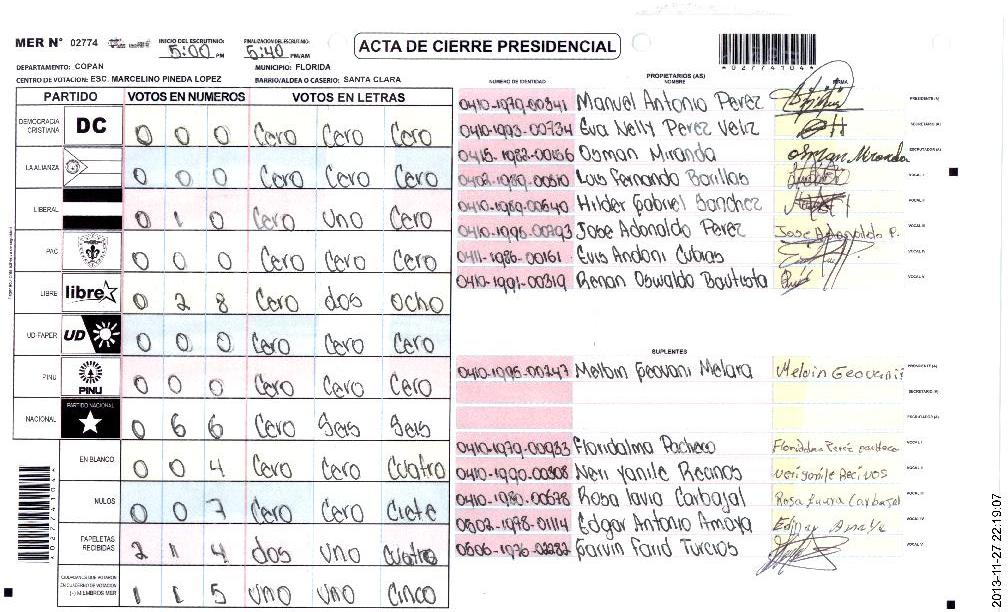 MER N° 02774 INICIO DEL ESCRUTINIO: 5:00 PM FINALIZACION DEL ESCRUTINIO: 5:40 PM/AM
ACTA DE CIERRE PRESIDENCIAL
*02774104*
DEPARTAMENTO: COPAN MUNICIPIO: FLORIDA
CENTRO DE VOTACION: ESC. MARCELINO PINEDA LOPEZ BARRIO/ALDEA O CASERIO: SANTA CLARA
PARTIDO VOTOS EN NUMEROS VOTOS EN LETRAS
DEMOCRACIA CRISTIANA DC 0 0 0 Cero Cero Cero
LA ALIANZA 0 0 0 Cero Cero Cero
LIBERAL 0 1 0 Cero uno Cero
PAC 0 0 0 Cero Cero Cero
LIBRE libre 0 2 8 Cero dos ocho
UD-FAPER UD 0 0 0 Cero Cero Cero
PINU PINU 0 0 0 Cero Cero Cero
NACIONAL PARTIDO NACIONAL 0 6 6 Cero Seis Seis
EN BLANCO 0 0 4 Cero Cero Cuatro
NULOS 0 0 7 Cero Cero Ciete
PAPELETAS RECIBIDAS 2 1 4 dos uno Cuatro
CIUDADANOS QUE VOTARON EN CUADERNO DE VOTACION (-) MIEMBROS MER 1 1 5 uno uno Cinco
*02774104*
PROPIETARIOS (AS)
NUMERO DE IDENTIDAD NOMBRE FIRMA
0410-1979-00341 Manuel Antonio Perez PRESIDENTE (A)
0410-1993-00734 Eva Nelly Perez Veliz SECRETARIO (A)
0415-1982-00156 Osman Miranda Osman Miranda ESCRUTADOR (A)
Luis Fernando Barillas VOCAL I
Hilder Gabriel Sanchez VOCAL II
0410-1995-00793 Jose Adonaldo Perez Jose Adonaldo P. VOCAL III
0411-1986-00161 VOCAL IV
0410-1991-00319 Renan Oswaldo Bautista VOCAL V
SUPLENTES
0410-1995-00247 Melbin Geovani Melara Melvin Geovani PRESIDENTE (A)
SECRETARIO (A)
ESCRUTADOR (A)
0410-1979-00933 Floridalma Pacheco VOCAL I
0410-1990-00308 Neri Yanile Recinos VOCAL II
Rosa Carbajal VOCAL III
0502-1978-01114 Edgar Antonio Amaya VOCAL IV
Garvin Farid Turcios VOCAL V
2013-11-27 22:19:07